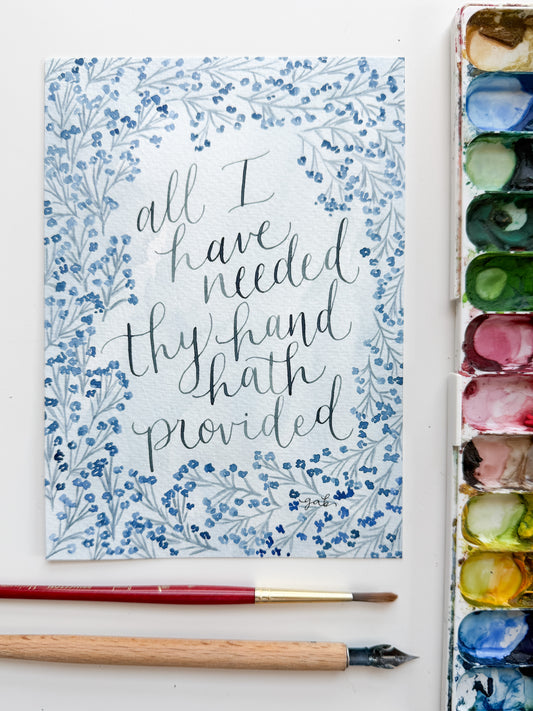 all I
have
needed
thy hand
hath
provided
gab